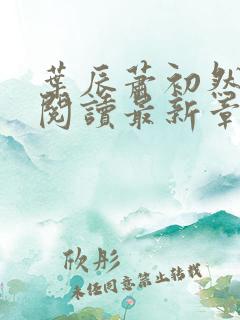 葉辰蕭初然
閱讀最新章
欣彤
未經同意禁止轉載